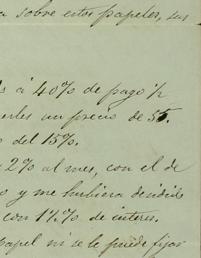 a sobre estos papeles, sus
s á 40% de pago ½
un precio de 55.
o del 15%.
2% al mes, con el de
o y me hubiera decidido
con 12% de interes.
papel ni se le puede fijar